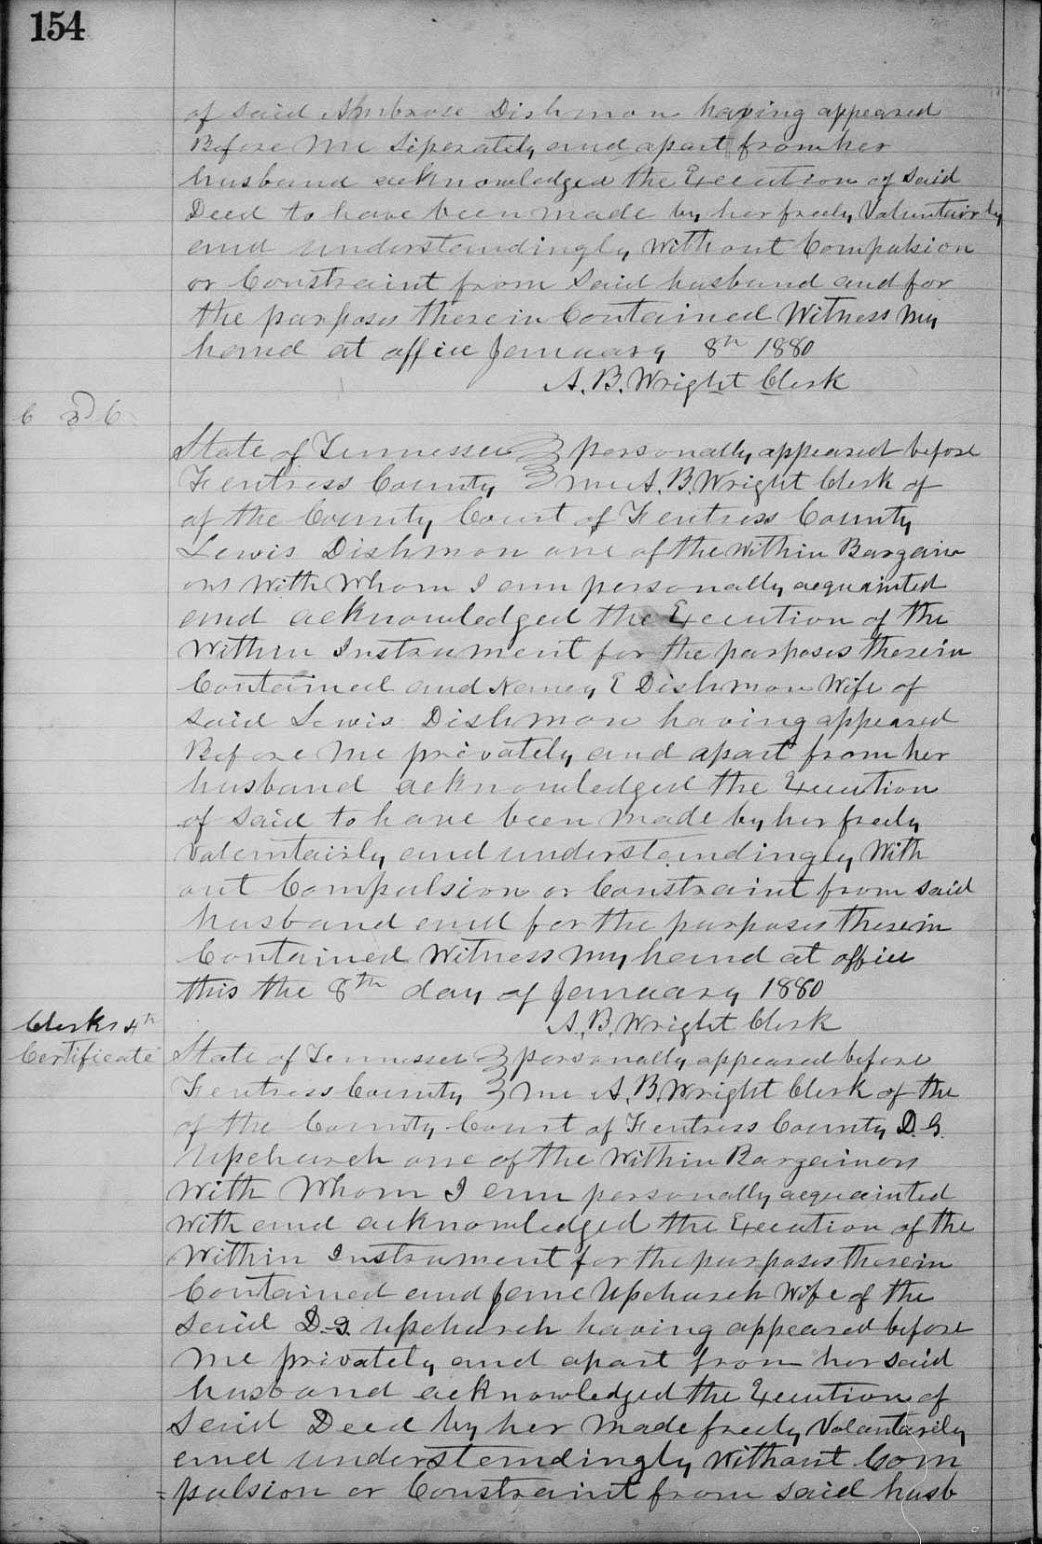 154
of said Ambrose Dishmon having appeared
Before Me Siperately and apart from her
husband acknowledged the Execution of said
Deed to have been made by her freely Voluntairly
and understandingly Without Compulsion
or Constraint from Said husband and for
the purposes therein Contained Witness My
hand at office January 8th 1880
A. B. Wright Clerk
C 3d C
State of Tennessee } personally appeared before
Fentress County } me A. B. Wright Clerk of
of the County Court of Fentress County
Lewis Dishmon one of the Within Bargain
ors With Whom I am personally acquainted
and acknowledged the Execution of the
Within Instrument for the purposes therein
Contained and Nancy E Dishmon Wife of
Said Lewis Dishmon having appeared
Before Me privately and apart from her
husband acknowledged the Execution
of Said to have been Made by her freely
Valentairly and understandingly With
out Compulsion or Constraint from said
husband and for the purposes therein
Contained Witness My hand at office
this the 8th day of January 1880
A. B. Wright Clerk
Clerks 4th
Certificate
State of Tennessee } personally appeared before
Fentress County } me A. B. Wright Clerk of the
of the County Court of Fentress County D. G.
Upchurch one of the Within Bargainors
With Whom I am personally acquainted
With and acknowledged the Execution of the
Within Instrument for the purposes therein
Contained and Jane Upchurch Wife of the
Said D. G. Upchurch having appeared before
Me privately and apart from her said
husband acknowledged the Execution of
Said Deed by her Made freely Volantarily
and understandingly Without Com
=pulsion or Constraint from said husb